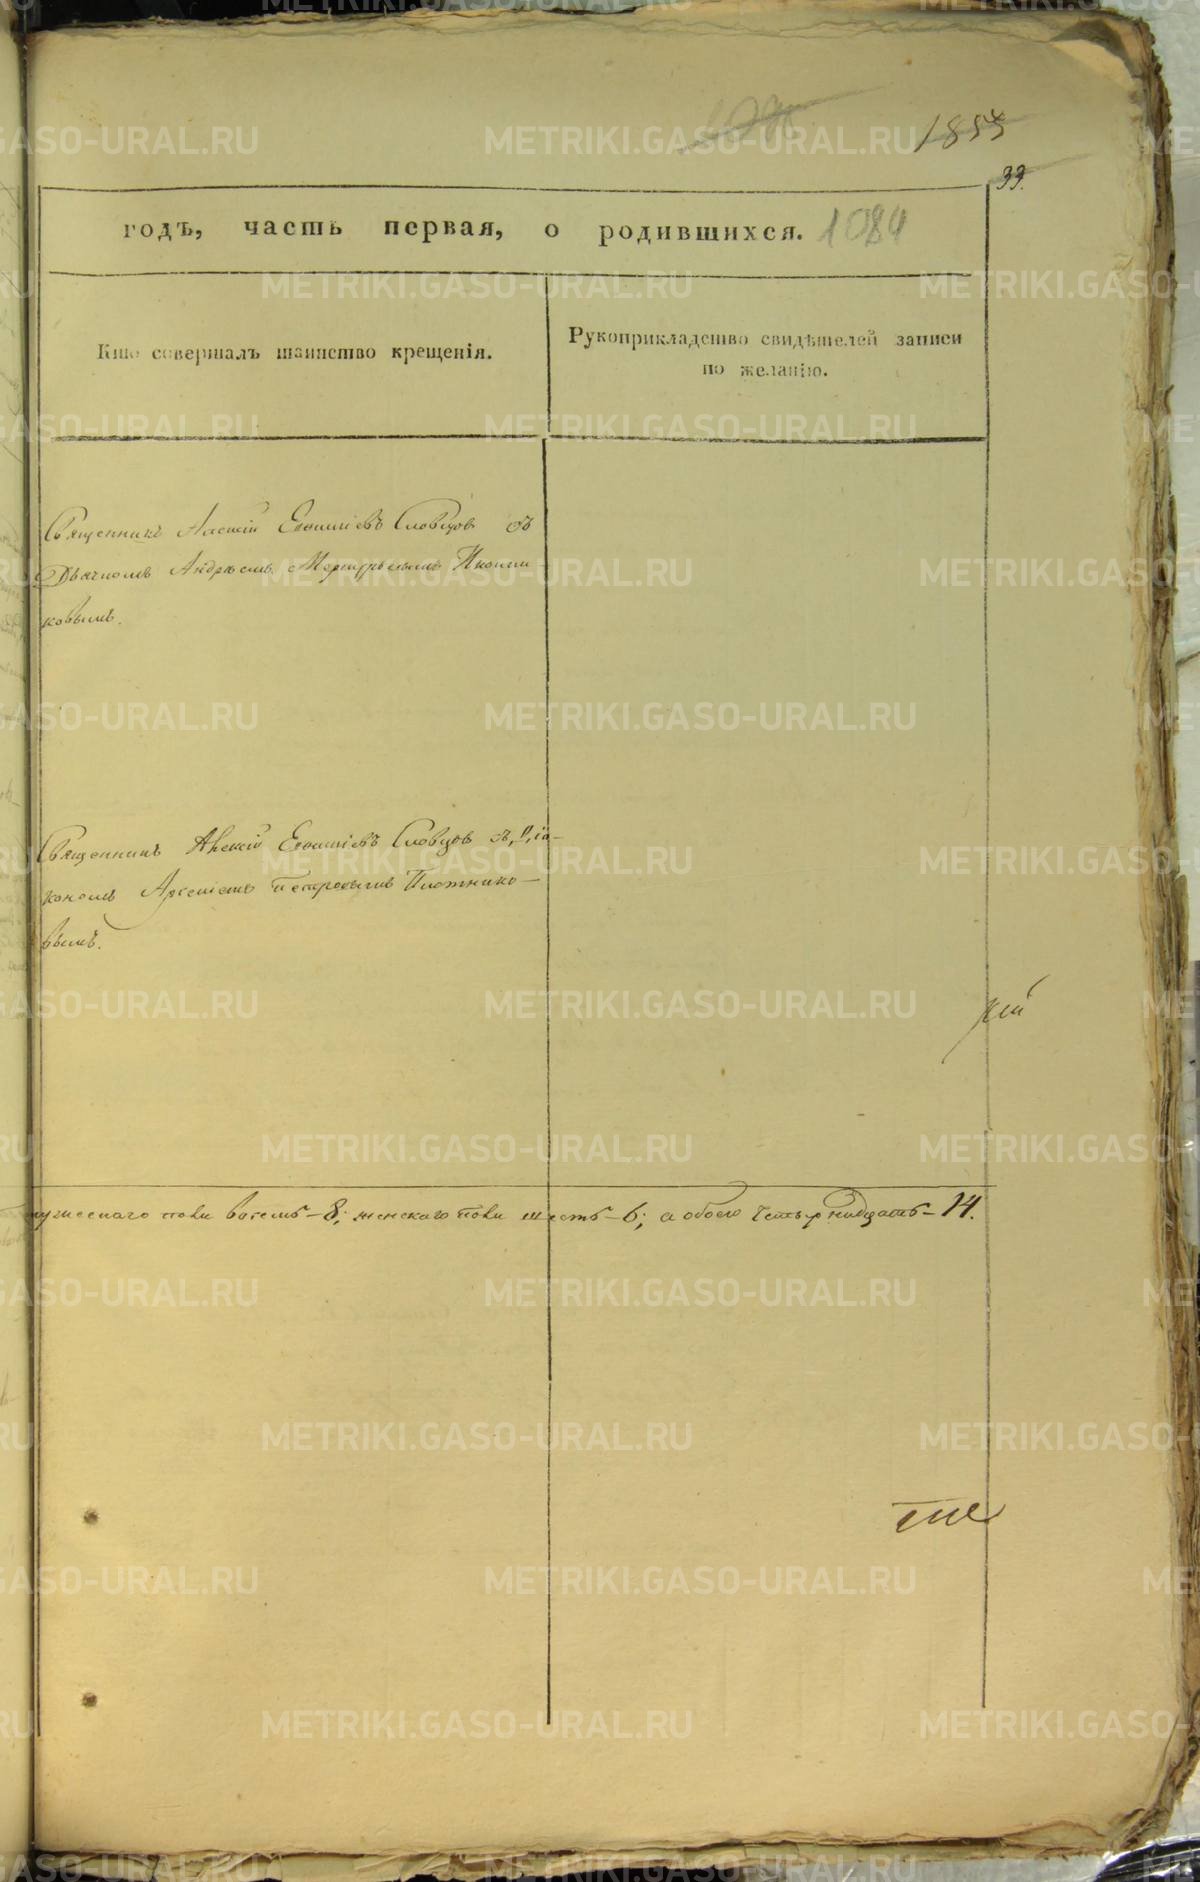 1854
33.
годъ, часть первая, о родившихся. 1084
Кто совершалъ таинство крещенія.
Рукоприкладство свидѣтелей записи
по желанію.
Священникъ Алексій Словцов съ
Дьячкомъ Андреемъ Меркурьевымъ
ковымъ.
Священникъ Алексій Словцов съ Діа-
кономъ Арсеніемъ Петровымъ Плотнико-
вымъ.
мужескаго пола восемь - 8; женскаго пола шесть - 6; а обоего четырнадцать - 14.
METRIKI.GASO-URAL.RU